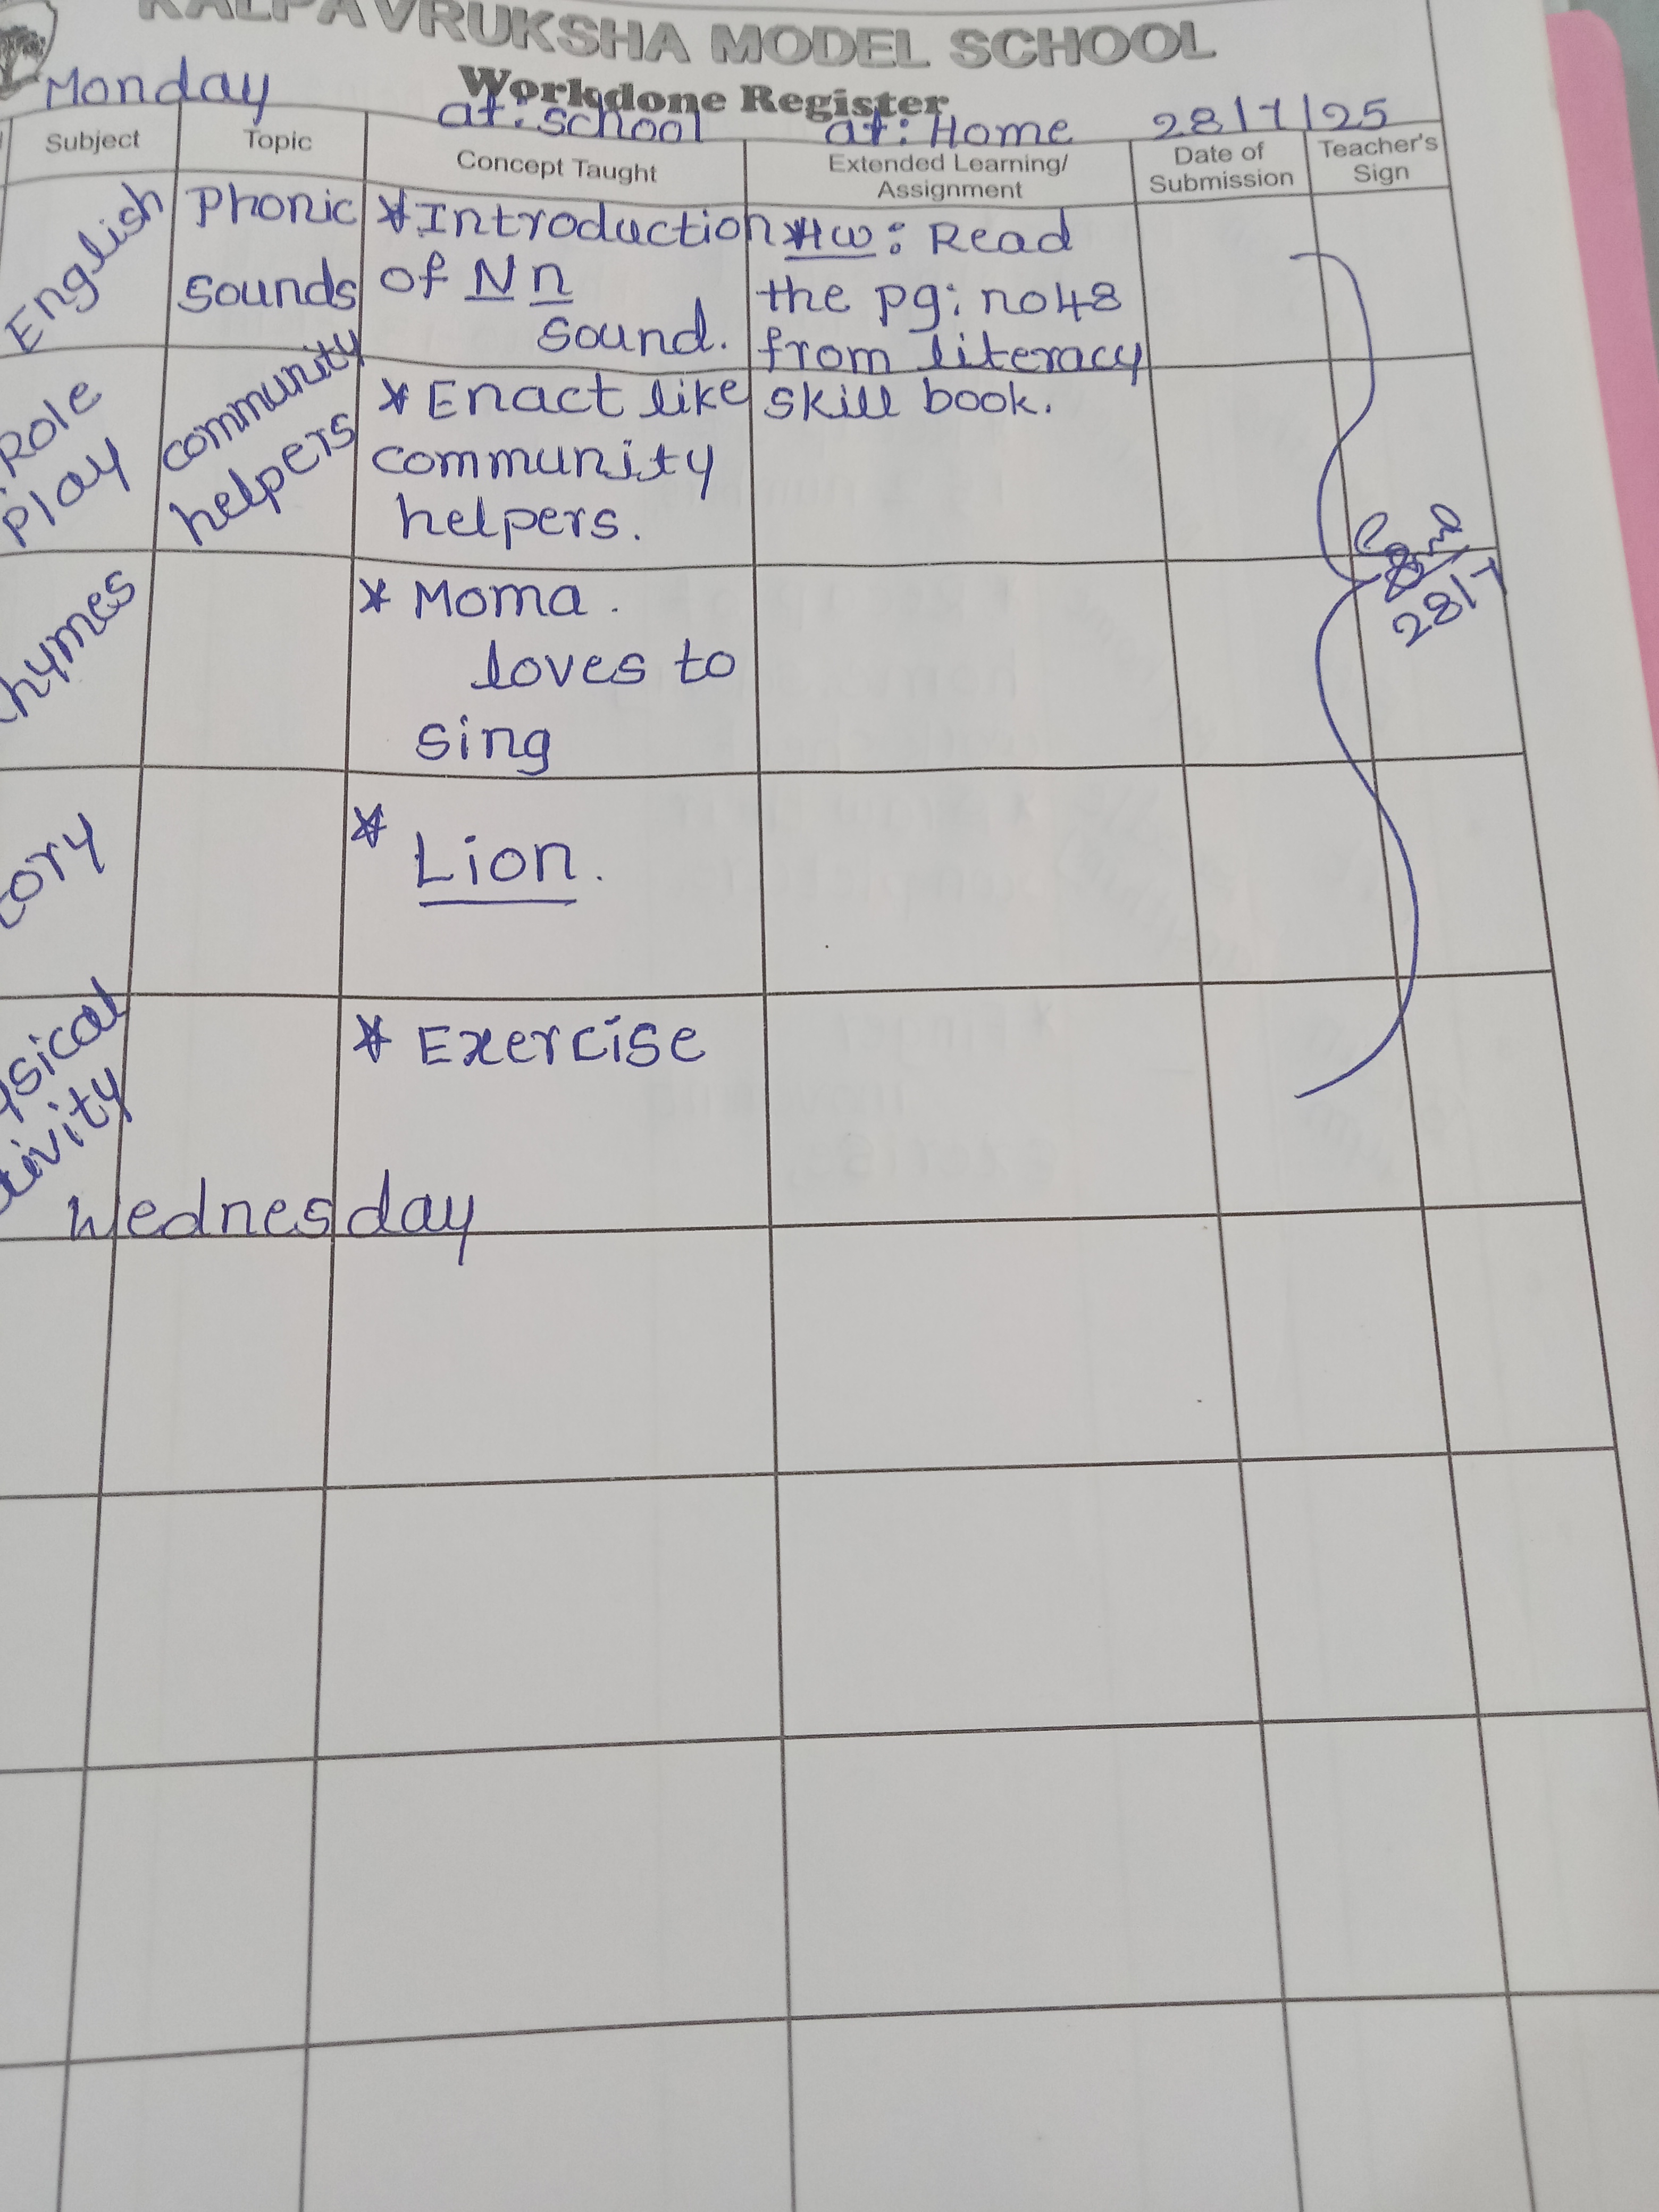 KALPAVRUKSHA MODEL SCHOOL
Workdone Register
Monday at: school at: Home 28/7/25
Subject Topic Concept Taught Extended Learning/ Assignment Date of Submission Teacher's Sign
English
Phonic
Sounds
* Introduction
of N n
sound.
* HW: Read
the pg: no 48
from literacy
skill book.
Role
Play
community
helpers
* Enact like
community
helpers.
hymes
* Moma.
loves to
sing
ory
* Lion.
sical
tivity
* Exercise
28/7
Wednesday